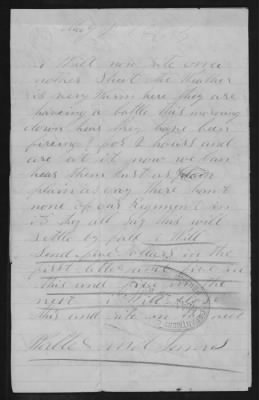 May
i Will now rite once
nother Sheet the Weather
is very Warm here they are
haveing a battle this morning
down hear they have ben
fireing for 2 houres and
are at it now we Can
hear them Just as plain
plain as day there haint
none of our Regiment in
it they all say this will
settle by fall i Will
Send five dollars in the
first letter and five in
this and five in the
next i Will Close
this and rite in the next